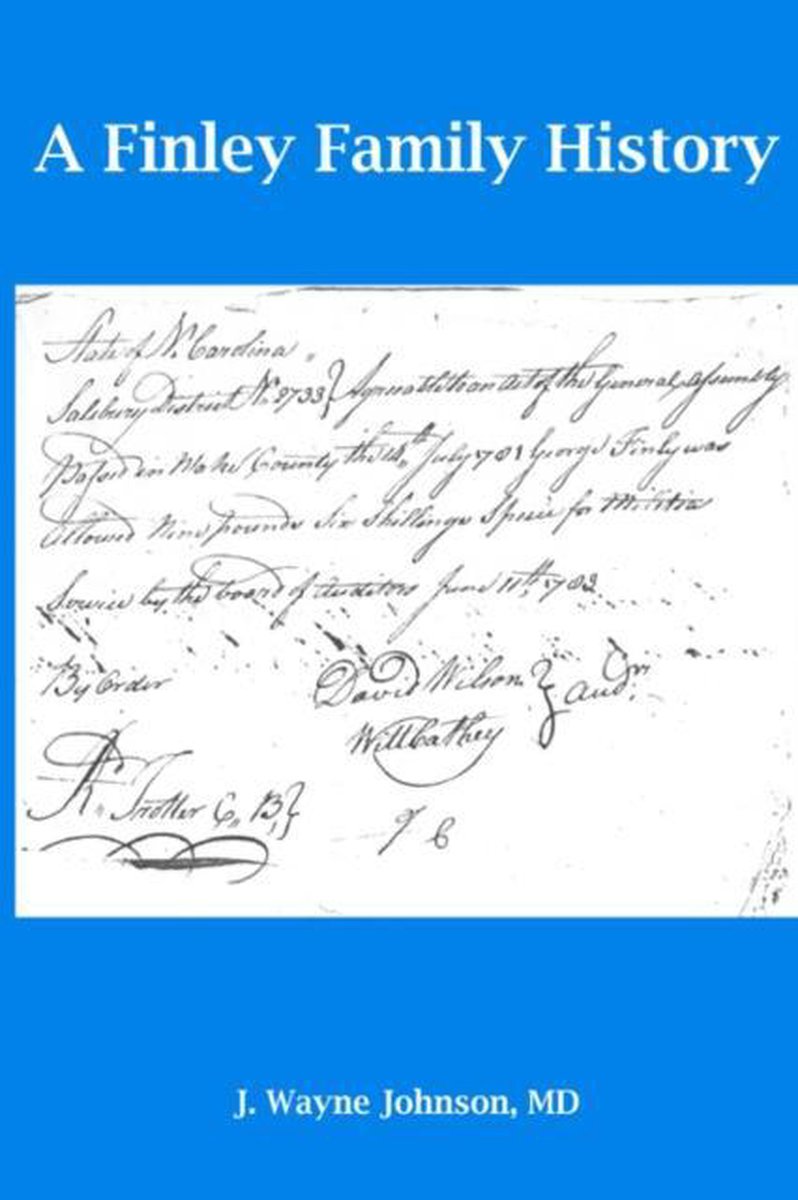 A Finley Family History
State of N. Carolina
Salsbury District No. 2733} Agreeable to an act of the General Assembly
Passed in Wake County the July 1781 George Finly was
allowed Nine pounds Six Shillings Specie for Militia
Service by the board of Auditors June 11th 1783
By Order
David Wilson } Audrs.
Will Cathey
Trotter C,, B,}
9 6
J. Wayne Johnson, MD